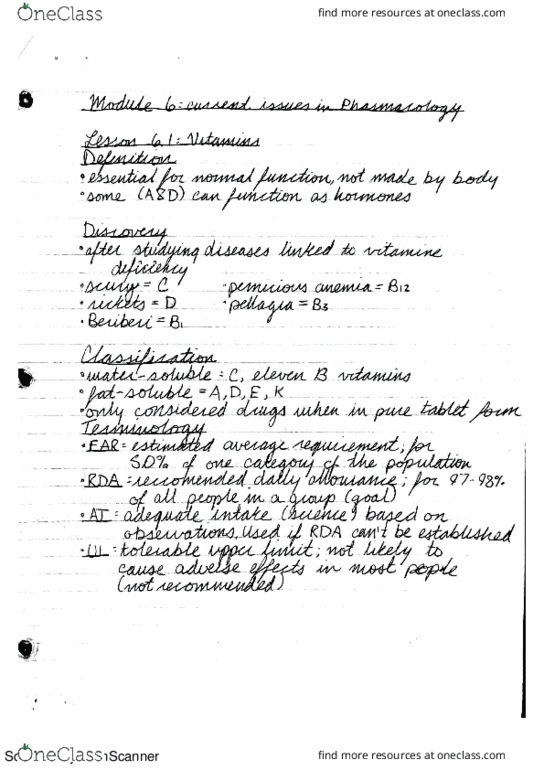 OneClass
find more resources at oneclass.com
Module 6: current issues in Pharmacology
Lesson 6.1: Vitamins
Definition
• essential for normal function, not made by body
• some (A&D) can function as hormones
Discovery
• after studying diseases linked to vitamine
deficiency
• scurvy = C
• pernicious anemia = B12
• rickets = D
• pellagia = B3
• Beriberi = B1
Classification
• water-soluble: C, eleven B vitamins
• fat-soluble = A, D, E, K
• only considered drugs when in pure tablet form
Terminology
• EAR = estimated average requirement; for
50% of one category of the population
• RDA = reccomended daily allowance; for 97-98%
of all people in a group (goal)
• AI = adequate intake (science) based on
observations. Used if RDA can't be established
• UL = tolerable upper limit; not likely to
cause adverse effects in most people
(not recommended)
OneClass
Scanner
find more resources at oneclass.com